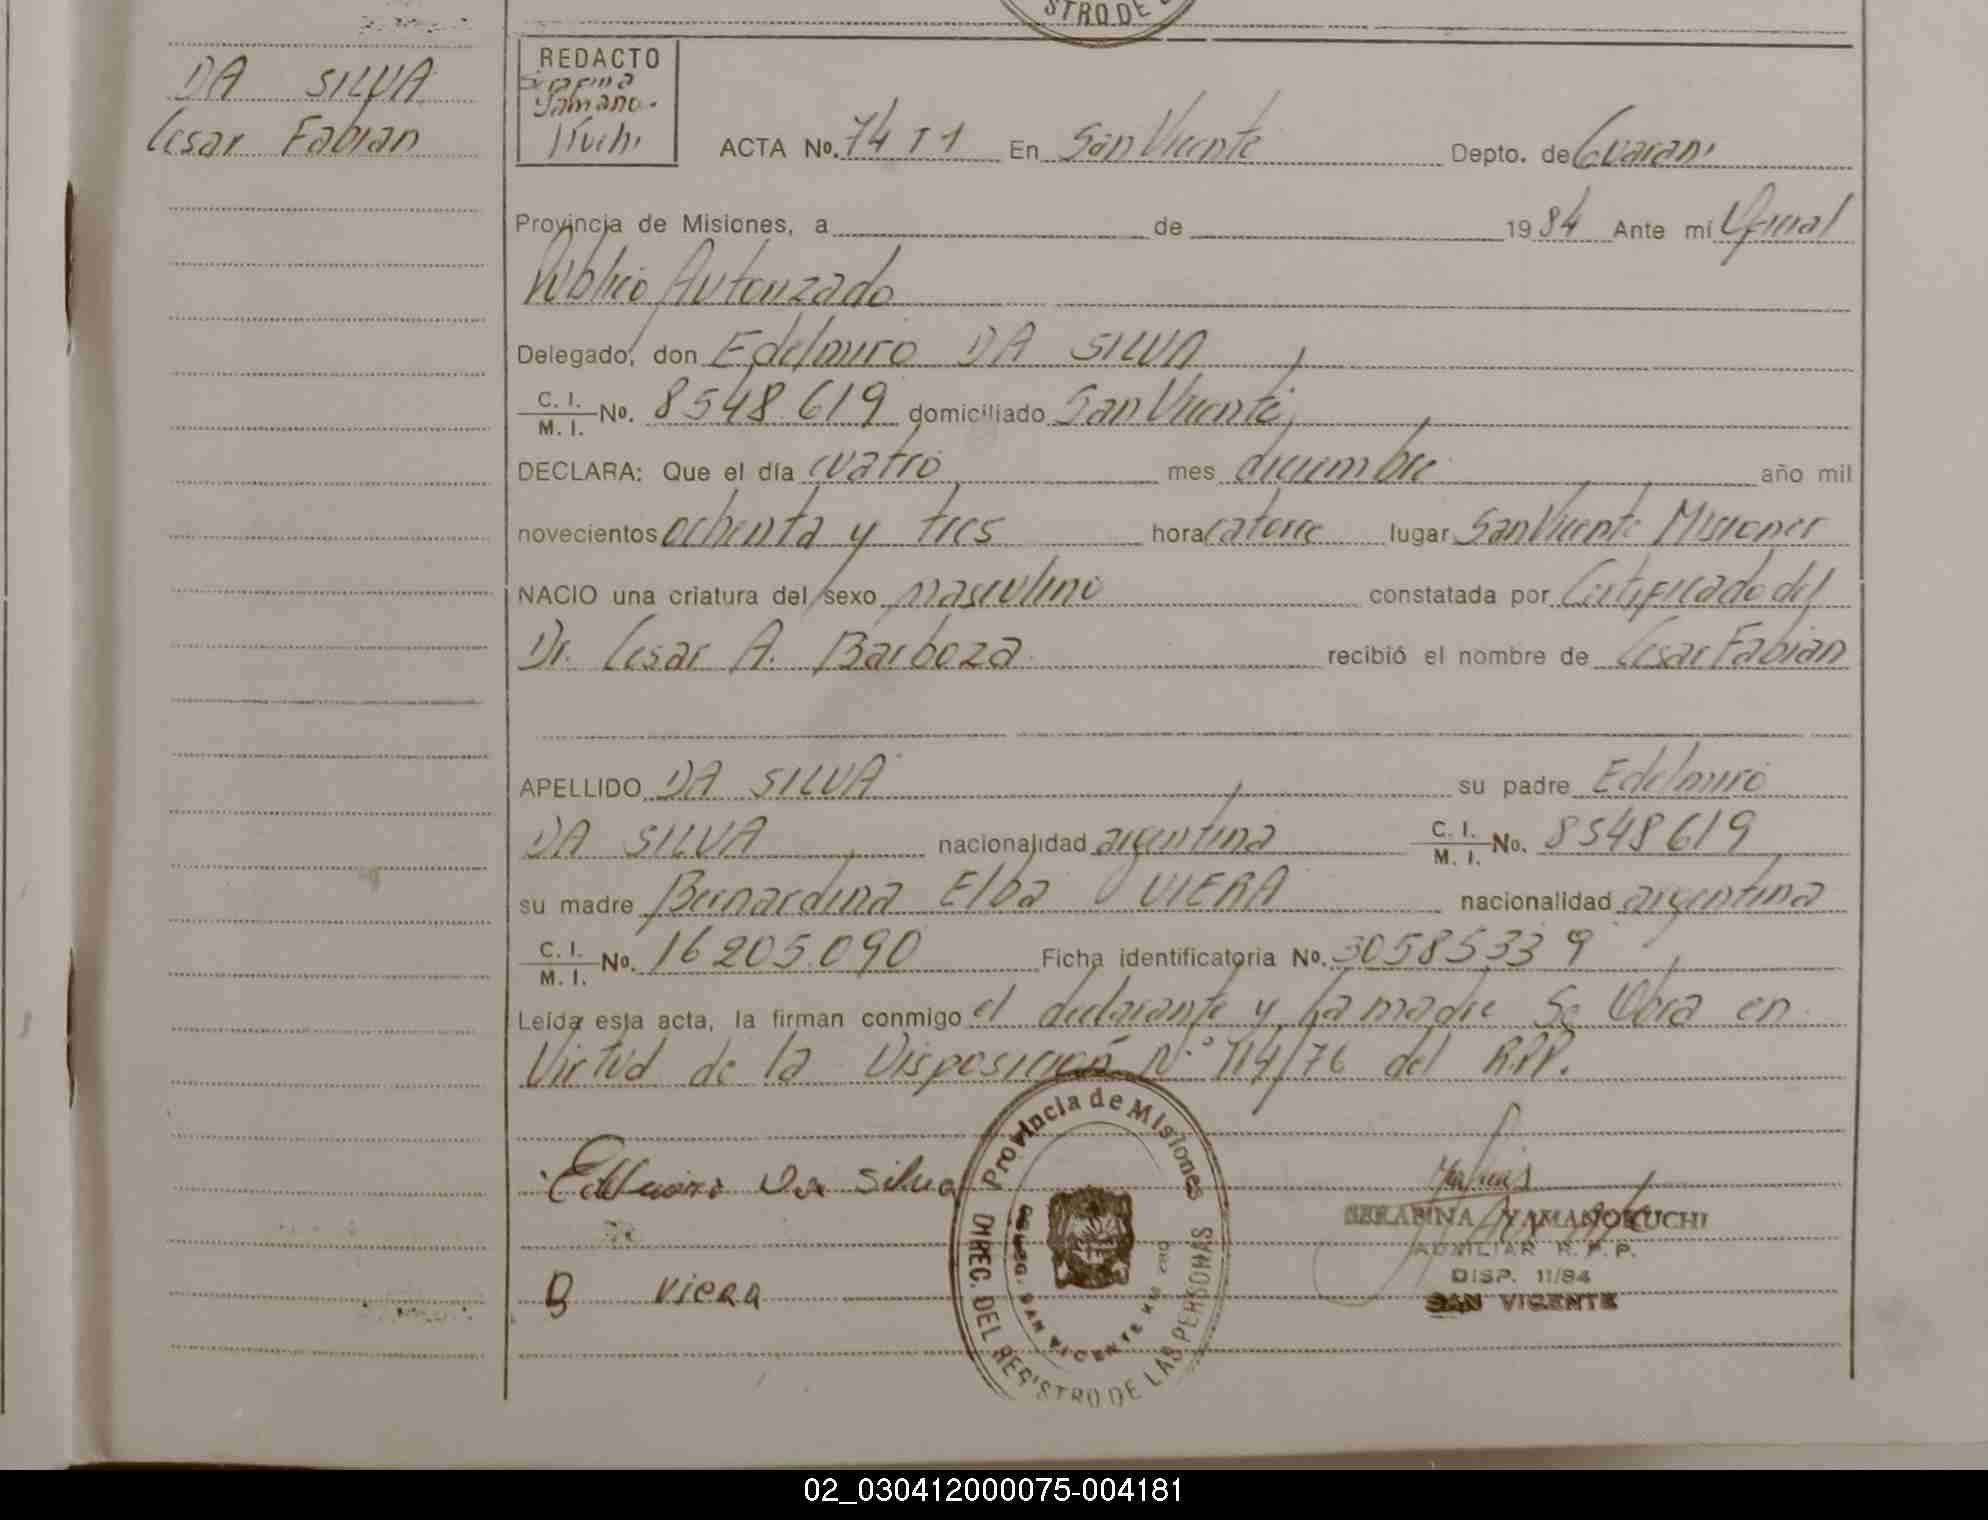 STRO DE L
DA SILVA
Cesar Fabian
REDACTO
Serafina
Yamano-
Kuchi
ACTA No. 74 T 1 En San Vicente Depto. de Guarani
Provincia de Misiones, a de 1984 Ante mí Oficial
Publico Autorizado
Delegado, don Edelmiro DA SILVA
C. I.
M. I. No. 8548.619 domiciliado San Vicente
DECLARA: Que el día cuatro mes diciembre año mil
novecientos ochenta y tres hora catorce lugar San Vicente Misiones
NACIO una criatura del sexo masculino constatada por Certificado del
Dr. Cesar A. Barboza recibió el nombre de Cesar Fabian
APELLIDO DA SILVA su padre Edelmiro
DA SILVA nacionalidad argentina C. I. M. I. No. 8548619
su madre Bernardina Elba VIERA nacionalidad argentina
C. I.
M. I. No. 16205.090 Ficha identificatoria No. 30585339
Leída esta acta, la firman conmigo el declarante y la madre Se Obra en
Virtud de la Disposición N.° 114/76 del R.P.P.
Provincia de Misiones
DIREC. DEL REGISTRO DE LAS PERSONAS
DELEG. SAN VICENTE
Edelmiro Da Silva
SERAFINA YAMANOKUCHI
AUXILIAR R. P. P.
DISP. 11/84
SAN VICENTE
B Viera
02_030412000075-004181